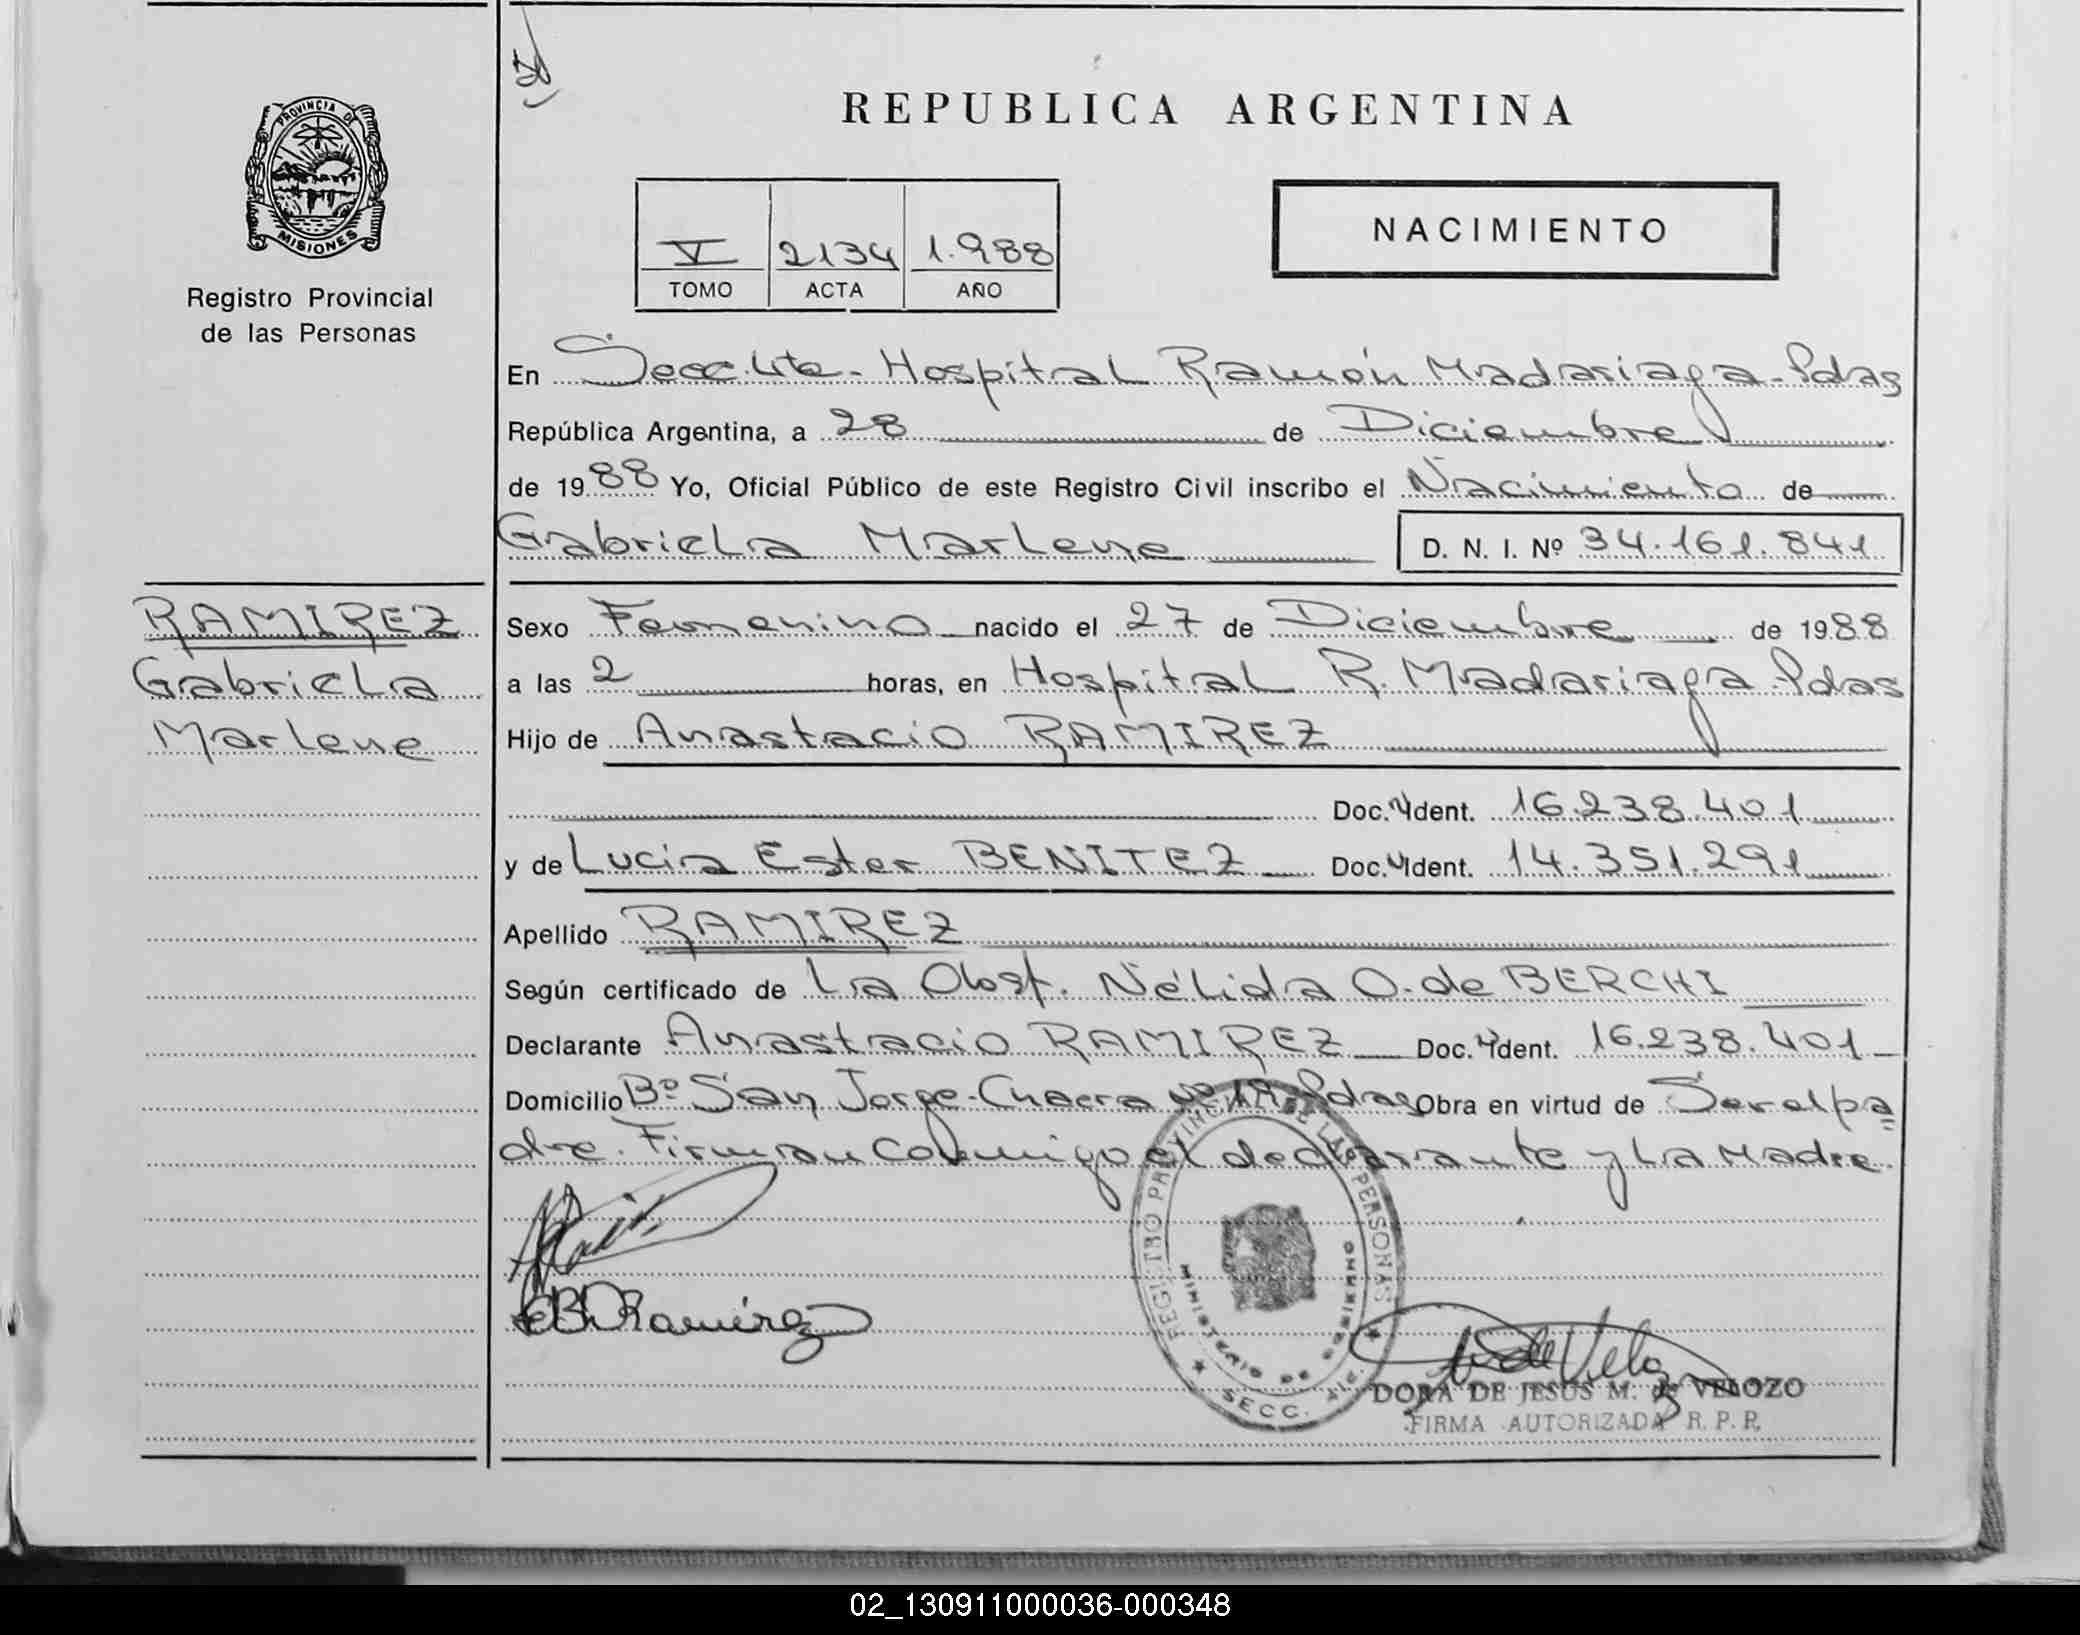 PROVINCIA DE
MISIONES
Registro Provincial
de las Personas
REPUBLICA ARGENTINA
V 2134 1.988
TOMO ACTA AÑO
NACIMIENTO
En Secc. Hospital Ramón Madariaga - Pdas
República Argentina, a 28 de Diciembre
de 1988 Yo, Oficial Público de este Registro Civil inscribo el Nacimiento de
Gabriela Marlene D. N. I. Nº 34.161.841
RAMIREZ
Gabriela
Marlene
Sexo Femenino nacido el 27 de Diciembre de 1988
a las 2 horas, en Hospital R. Madariaga. Pdas
Hijo de Anastacio RAMIREZ
Doc. Ident. 16.238.401
y de Lucia Ester BENITEZ Doc. Ident. 14.351.291
Apellido RAMIREZ
Según certificado de La Obst. Nélida O. de BERCHI
Declarante Anastacio RAMIREZ Doc. Ident. 16.238.401
Domicilio Bº San Jorge - Chacra Nº Pdas Obra en virtud de Ser el pa
dre. Firman conmigo el declarante y la Madre.
REGISTRO PROVINCIAL DE LAS PERSONAS
MINISTERIO DE GOBIERNO
SECC.
Ramírez
DORA DE JESUS M. de VELOZO
FIRMA AUTORIZADA R. P. P.
02_130911000036-000348